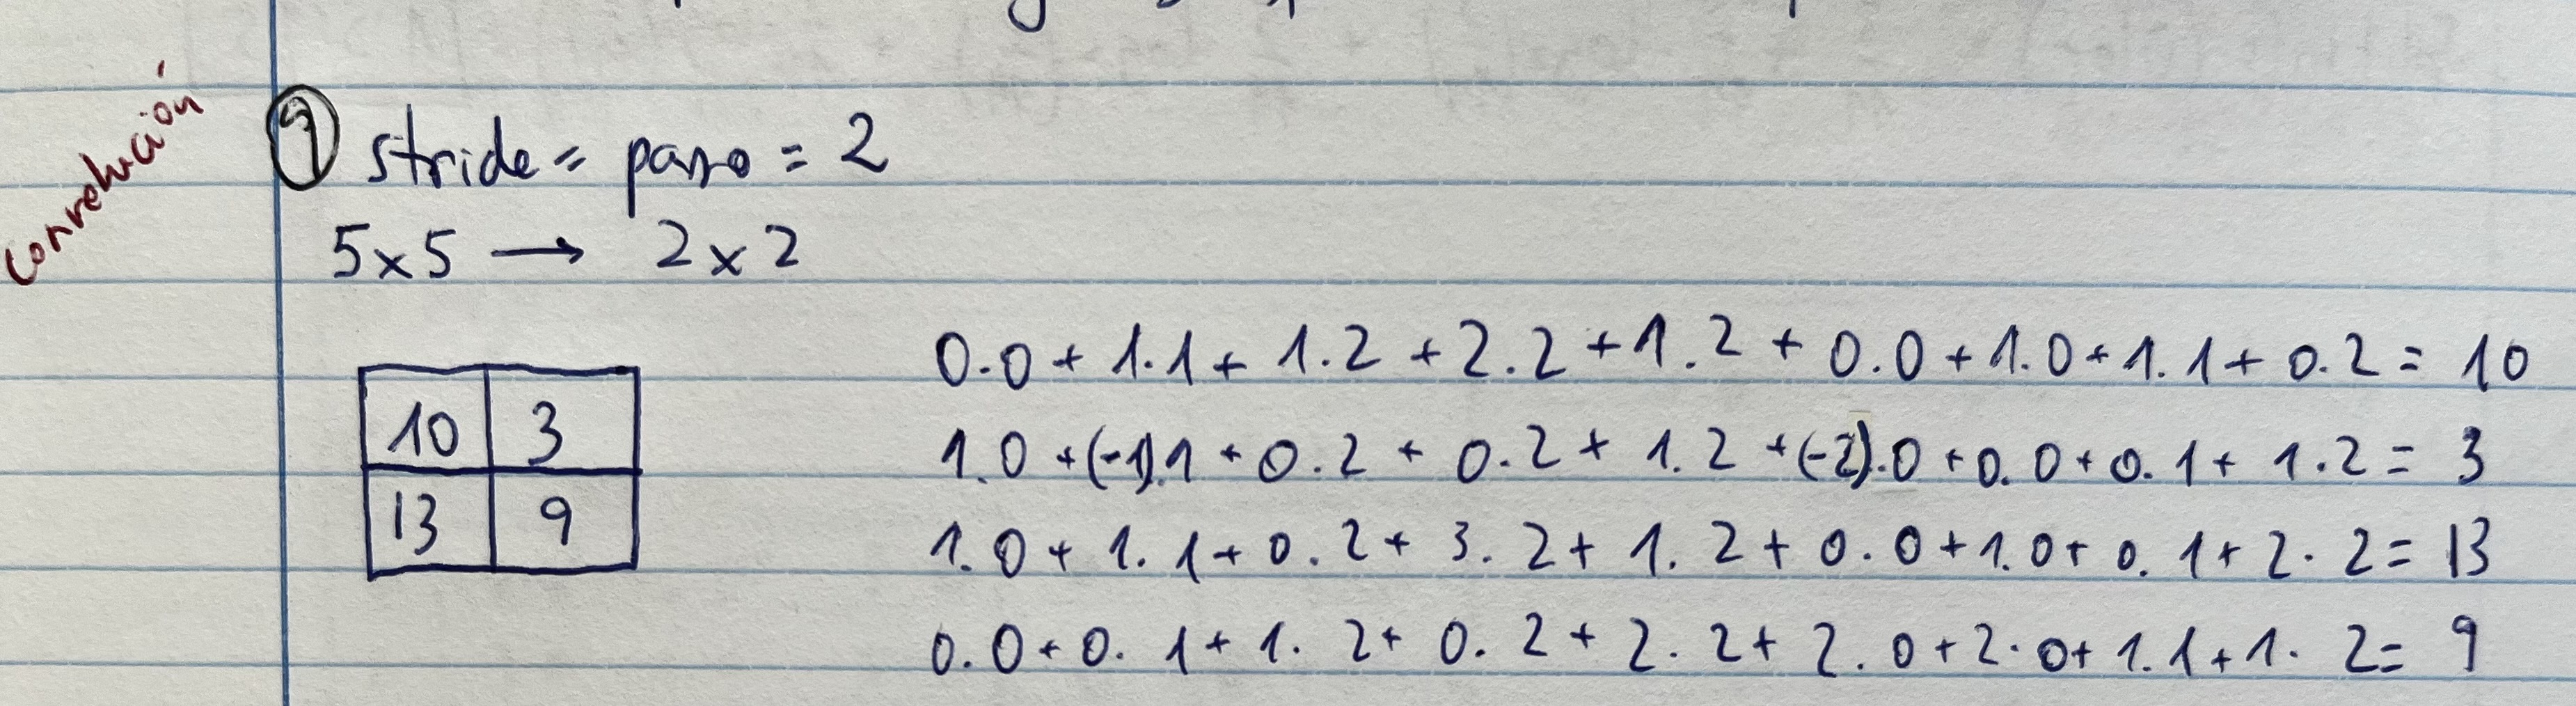 Convolución
9 stride = paso = 2
5x5 → 2x2
10 3
13 9
0.0 + 1.1 + 1.2 + 2.2 + 1.2 + 0.0 + 1.0 + 1.1 + 0.2 = 10
1.0 + (-1).1 + 0.2 + 0.2 + 1.2 + (-2).0 + 0.0 + 0.1 + 1.2 = 3
1.0 + 1.1 + 0.2 + 3.2 + 1.2 + 0.0 + 1.0 + 0.1 + 2.2 = 13
0.0 + 0.1 + 1.2 + 0.2 + 2.2 + 2.0 + 2.0 + 1.1 + 1.2 = 9